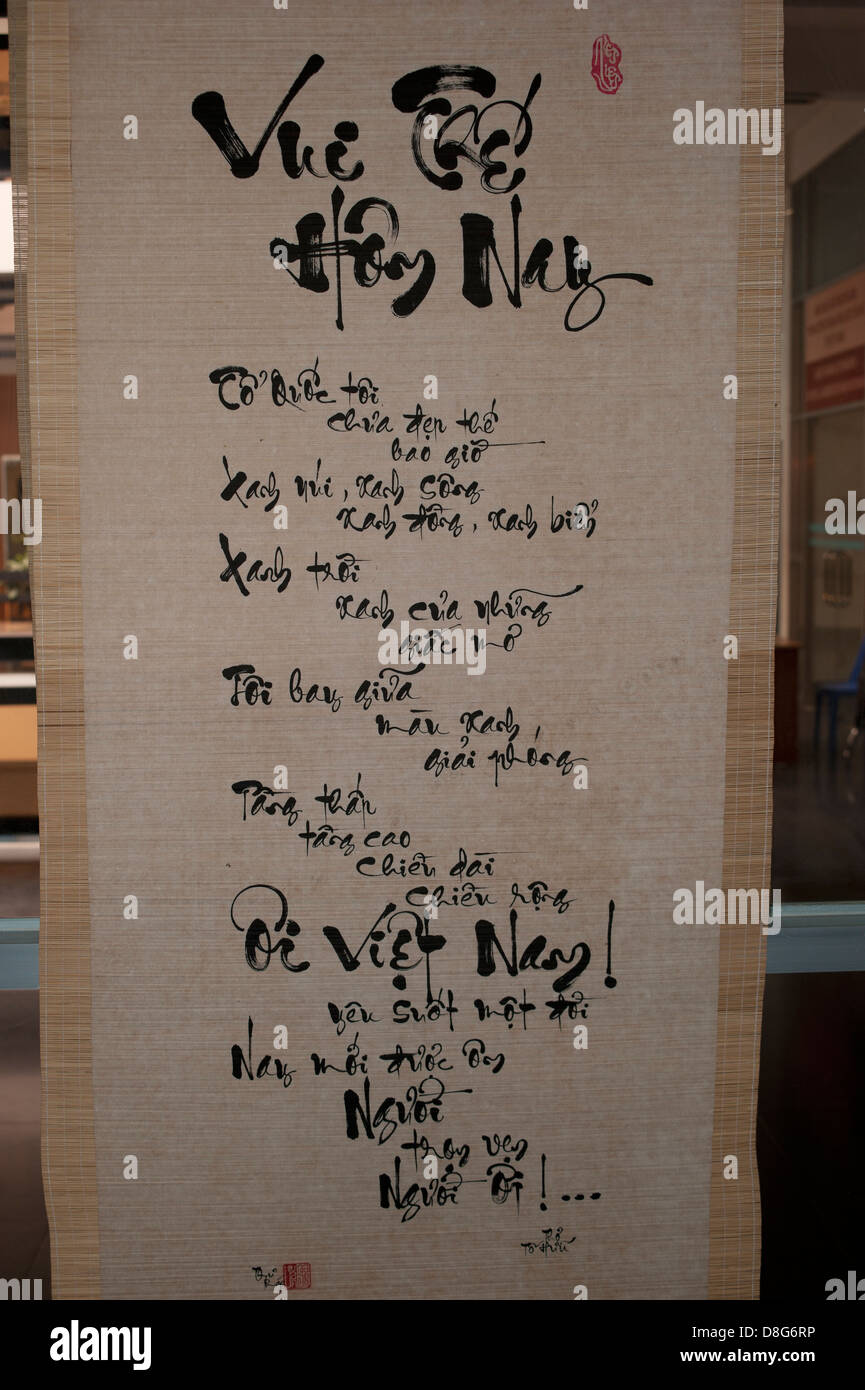 Vui Thế
Hôm Nay
Tổ Quốc tôi
chưa đẹp thế
bao giờ
Xanh núi, xanh sông
xanh đồng, xanh biển
Xanh trời
xanh của những
giấc mơ
Tôi bay giữa
màu xanh
giải phóng
Tầng thấp
tầng cao
chiều dài
chiều rộng
Ôi Việt Nam!
yêu suốt một đời
Nay mới được ôm
Người
trọn vẹn
Người ơi!...
Thơ
Tố Hữu
alamy
www.alamy.com
Image ID: D8G6RP